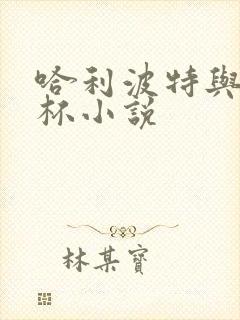 哈利波特與
杯小說
林某寶